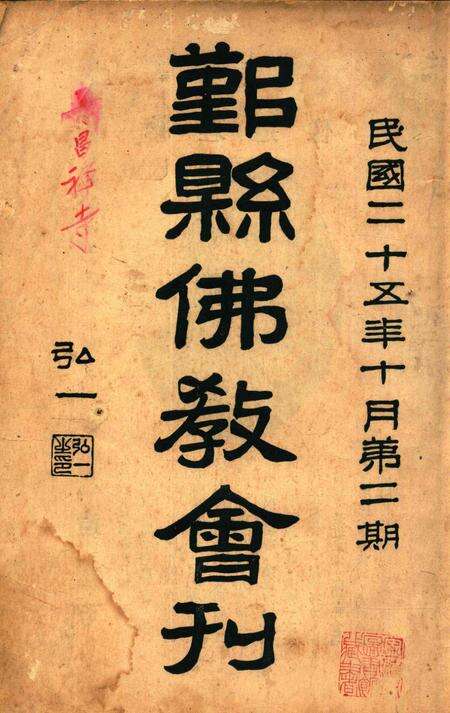 民國二十五年十月第二期
鄞縣佛教會刊
弘一
弘一
昌祥寺